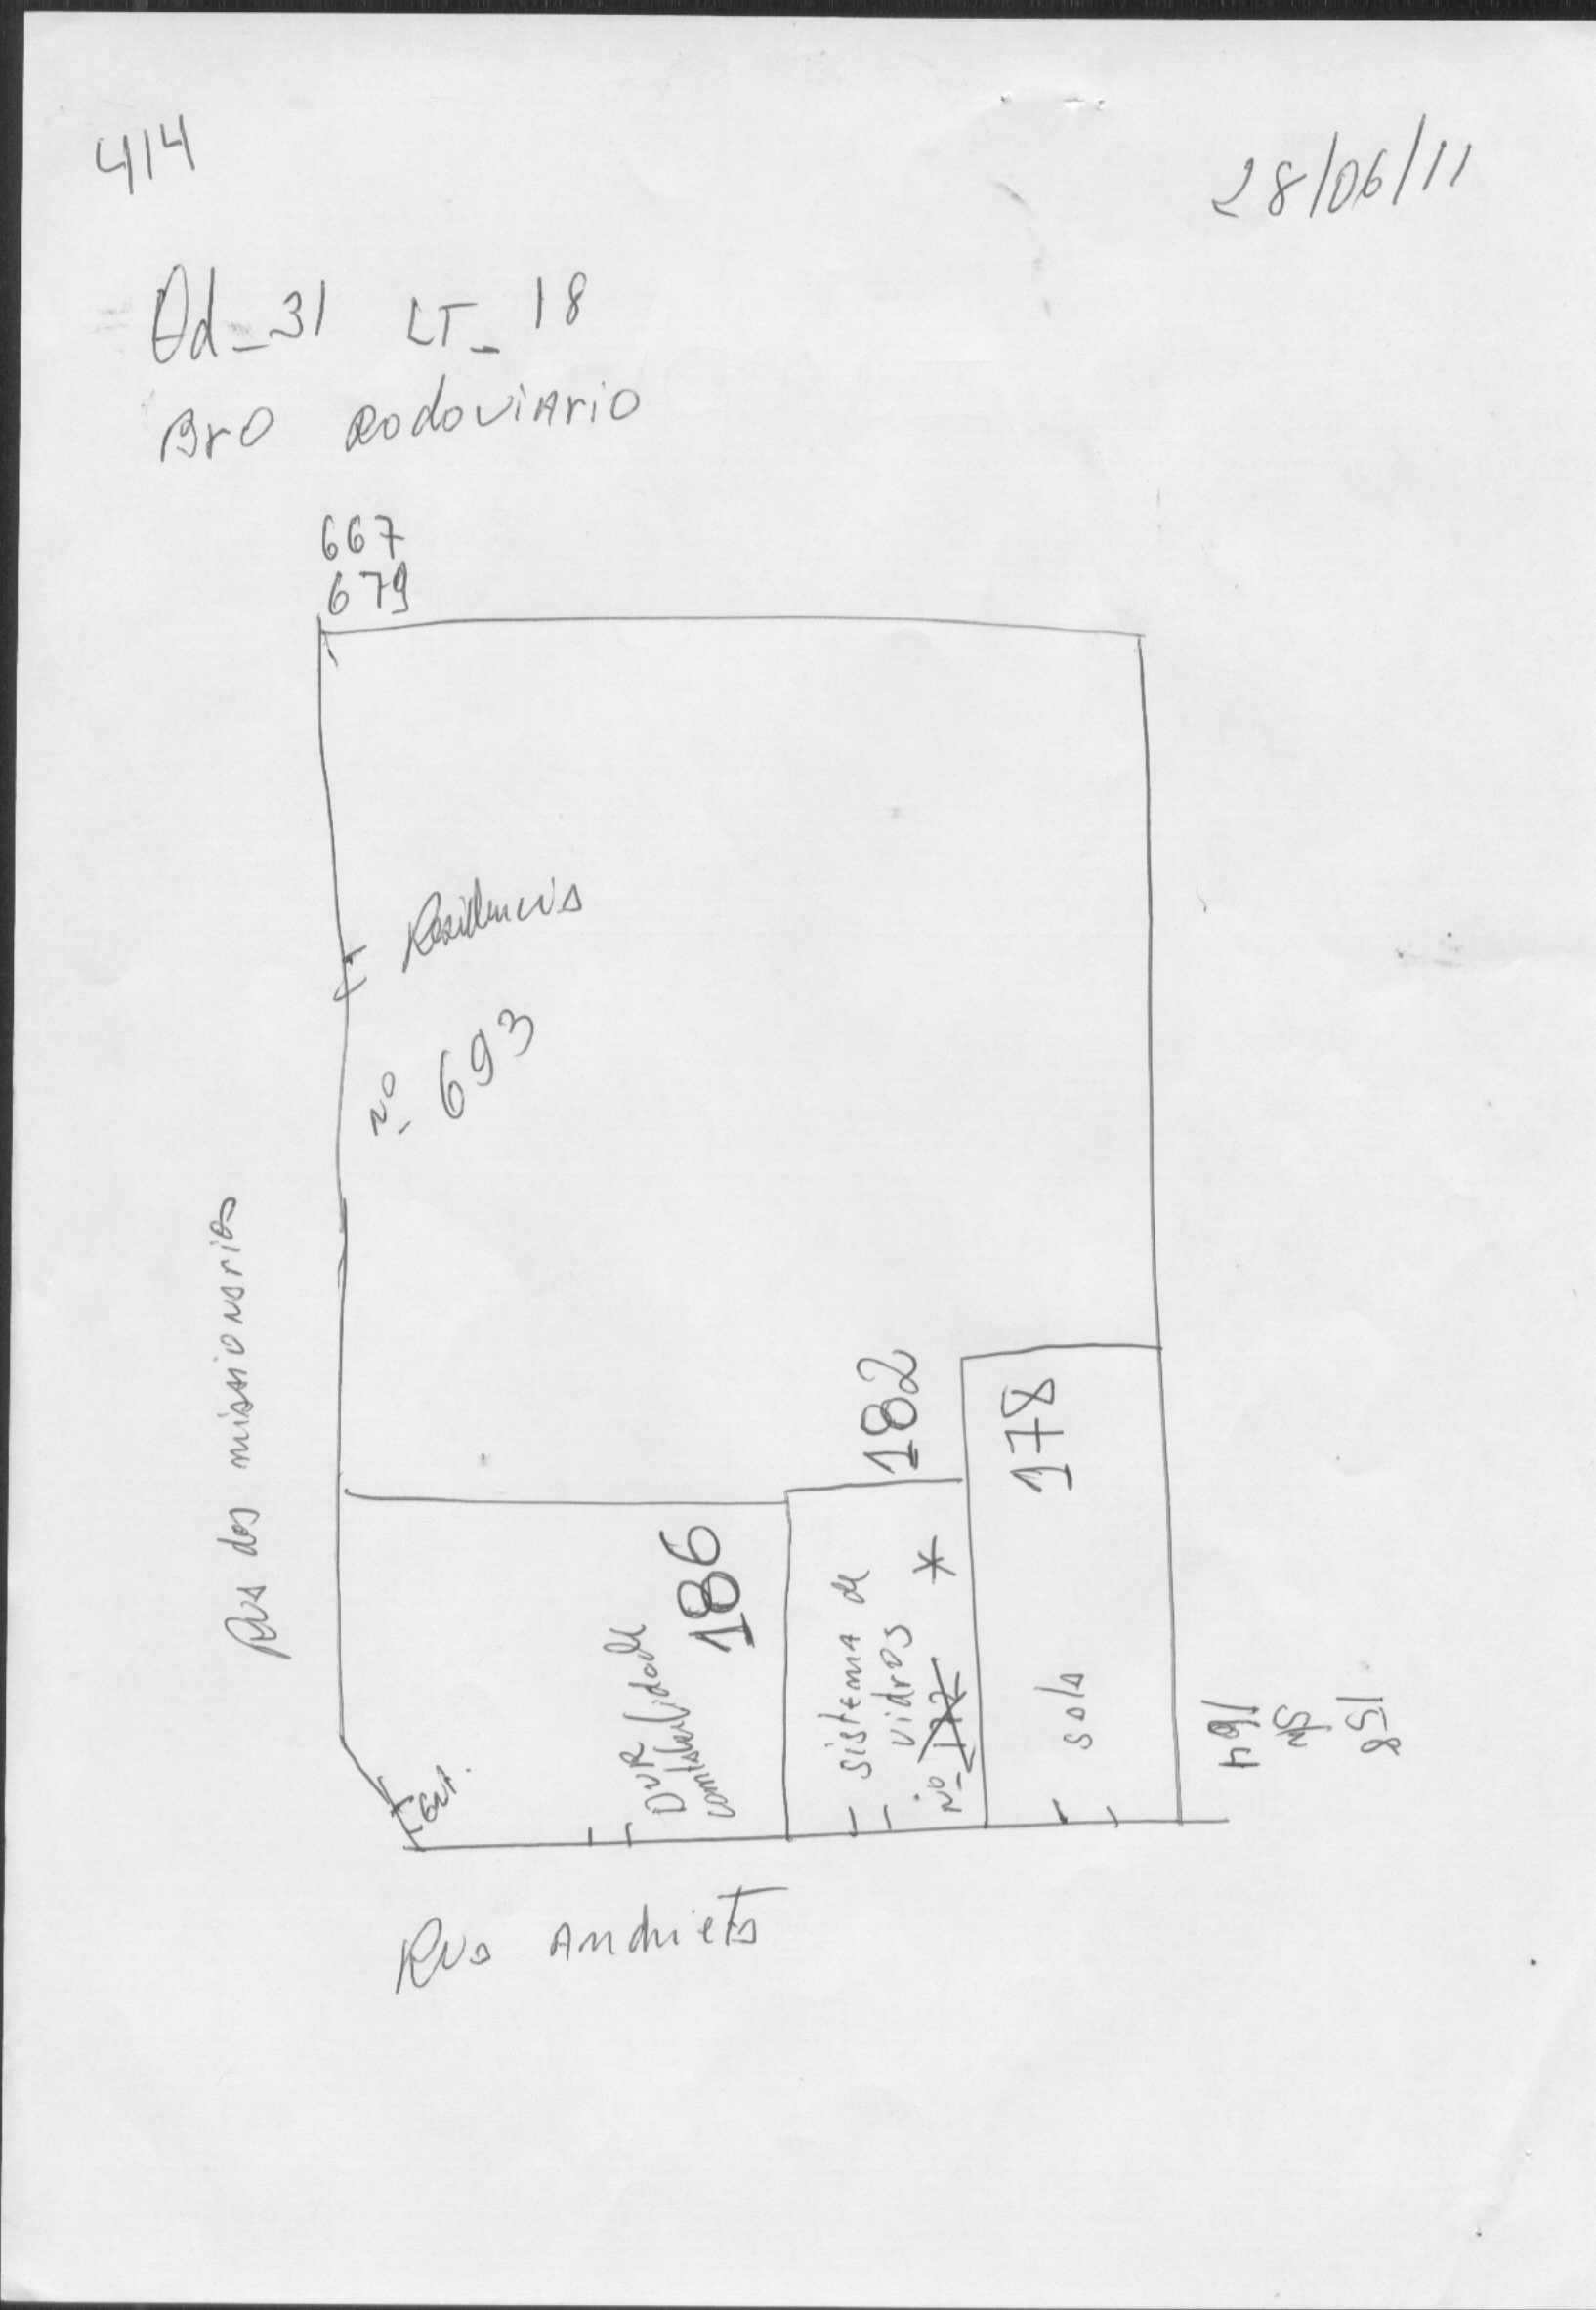 414
28/06/11
Qd_31 LT_18
Bro Rodoviario
667
679
Residencia
nº 693
Rua dos missionarios
182
178
186
DVR
contabilidade
sistema de
vidros *
nº
sala
164
158
Rua Anchieta